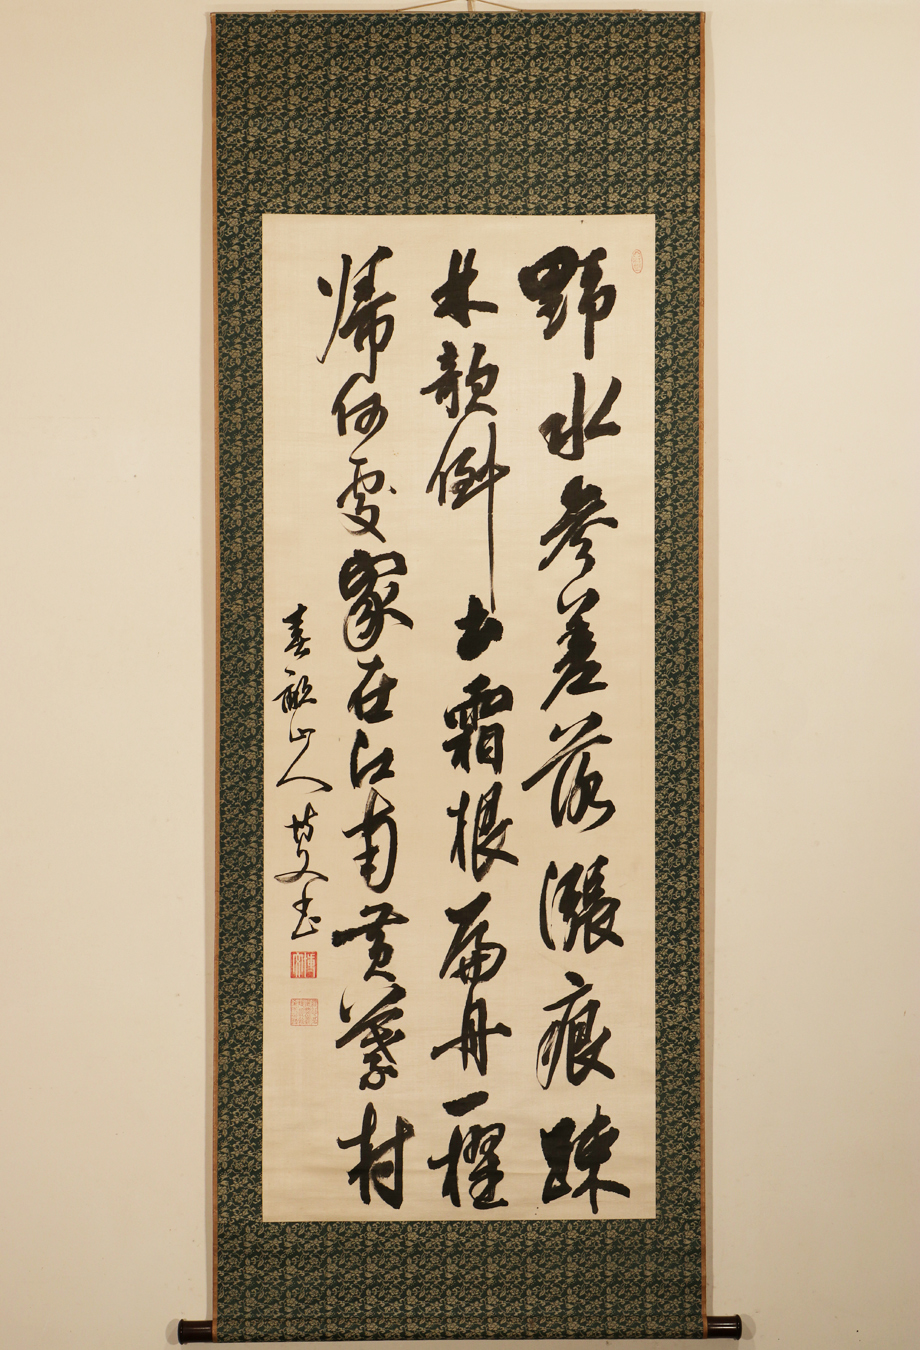 野水參差落漲痕疎
林欹倒出霜根扁舟一櫂
歸何處家在江南黃葉村
春畝山人博文書